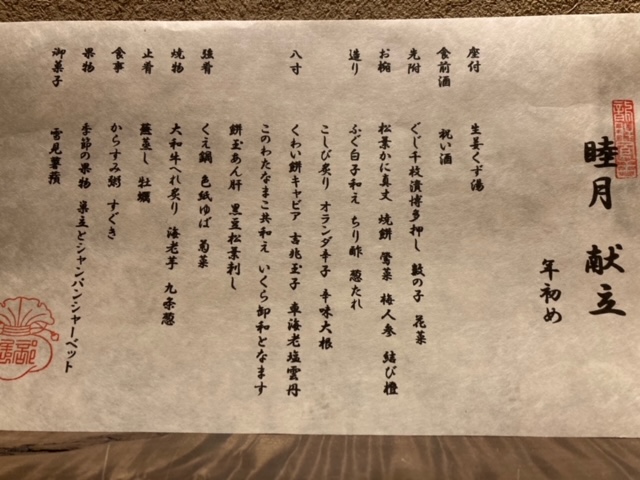 睦月 献立
年初め
座付 生姜くず湯
食前酒 祝い酒
先附 ぐじ千枚漬博多押し 数の子 花菜
お椀 松葉かに真丈 焼餅 鶯菜 梅人参 結び橙
造り ふぐ白子和え ちり酢 葱たれ
こしび炙り オランダ辛子 辛味大根
八寸 くわい餅キャビア 吉兆玉子 車海老塩雲丹
このわたなまこ共和え いくら卸和となます
餅玉あん肝 黒豆松葉刺し
強肴 くえ鍋 色紙ゆば 菊菜
焼物 大和牛へれ炙り 海老芋 九条葱
止肴 蕪蒸し 牡蠣
食事 からすみ粥 すぐき
果物 季節の果物 巣立とシャンパンシャーベット
御菓子 雪見草餅